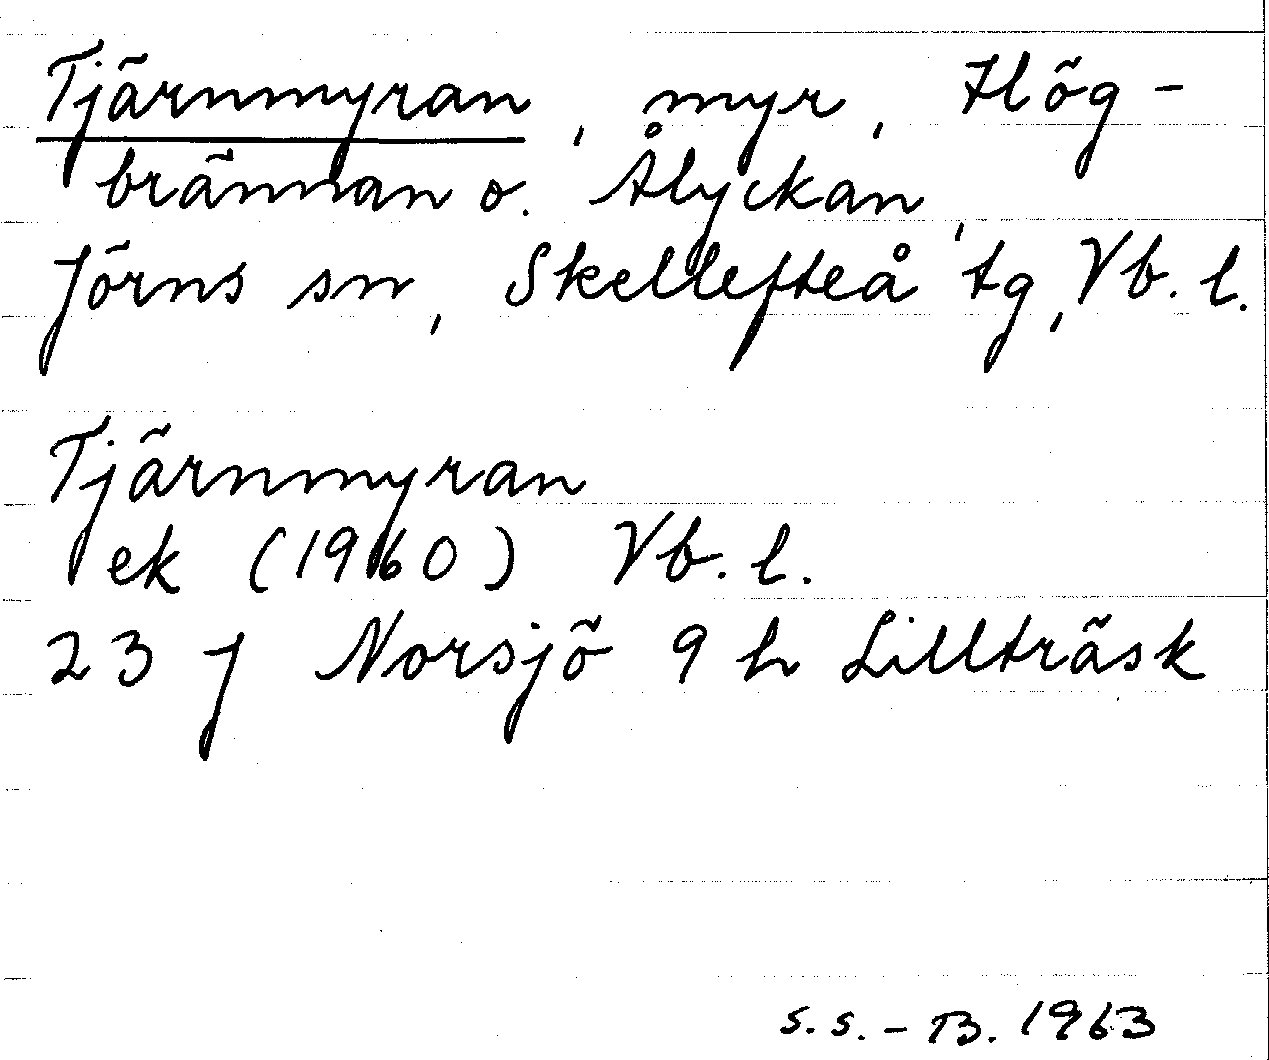 Tjärnmyran, myr, Hög-
brännan o. Ålyckan,
Jörns sn, Skellefteå tg, Vb. l.
Tjärnmyran
ek (1960) Vb. l.
23 J Norsjö 9 h Lillträsk
S.S. - B. 1963